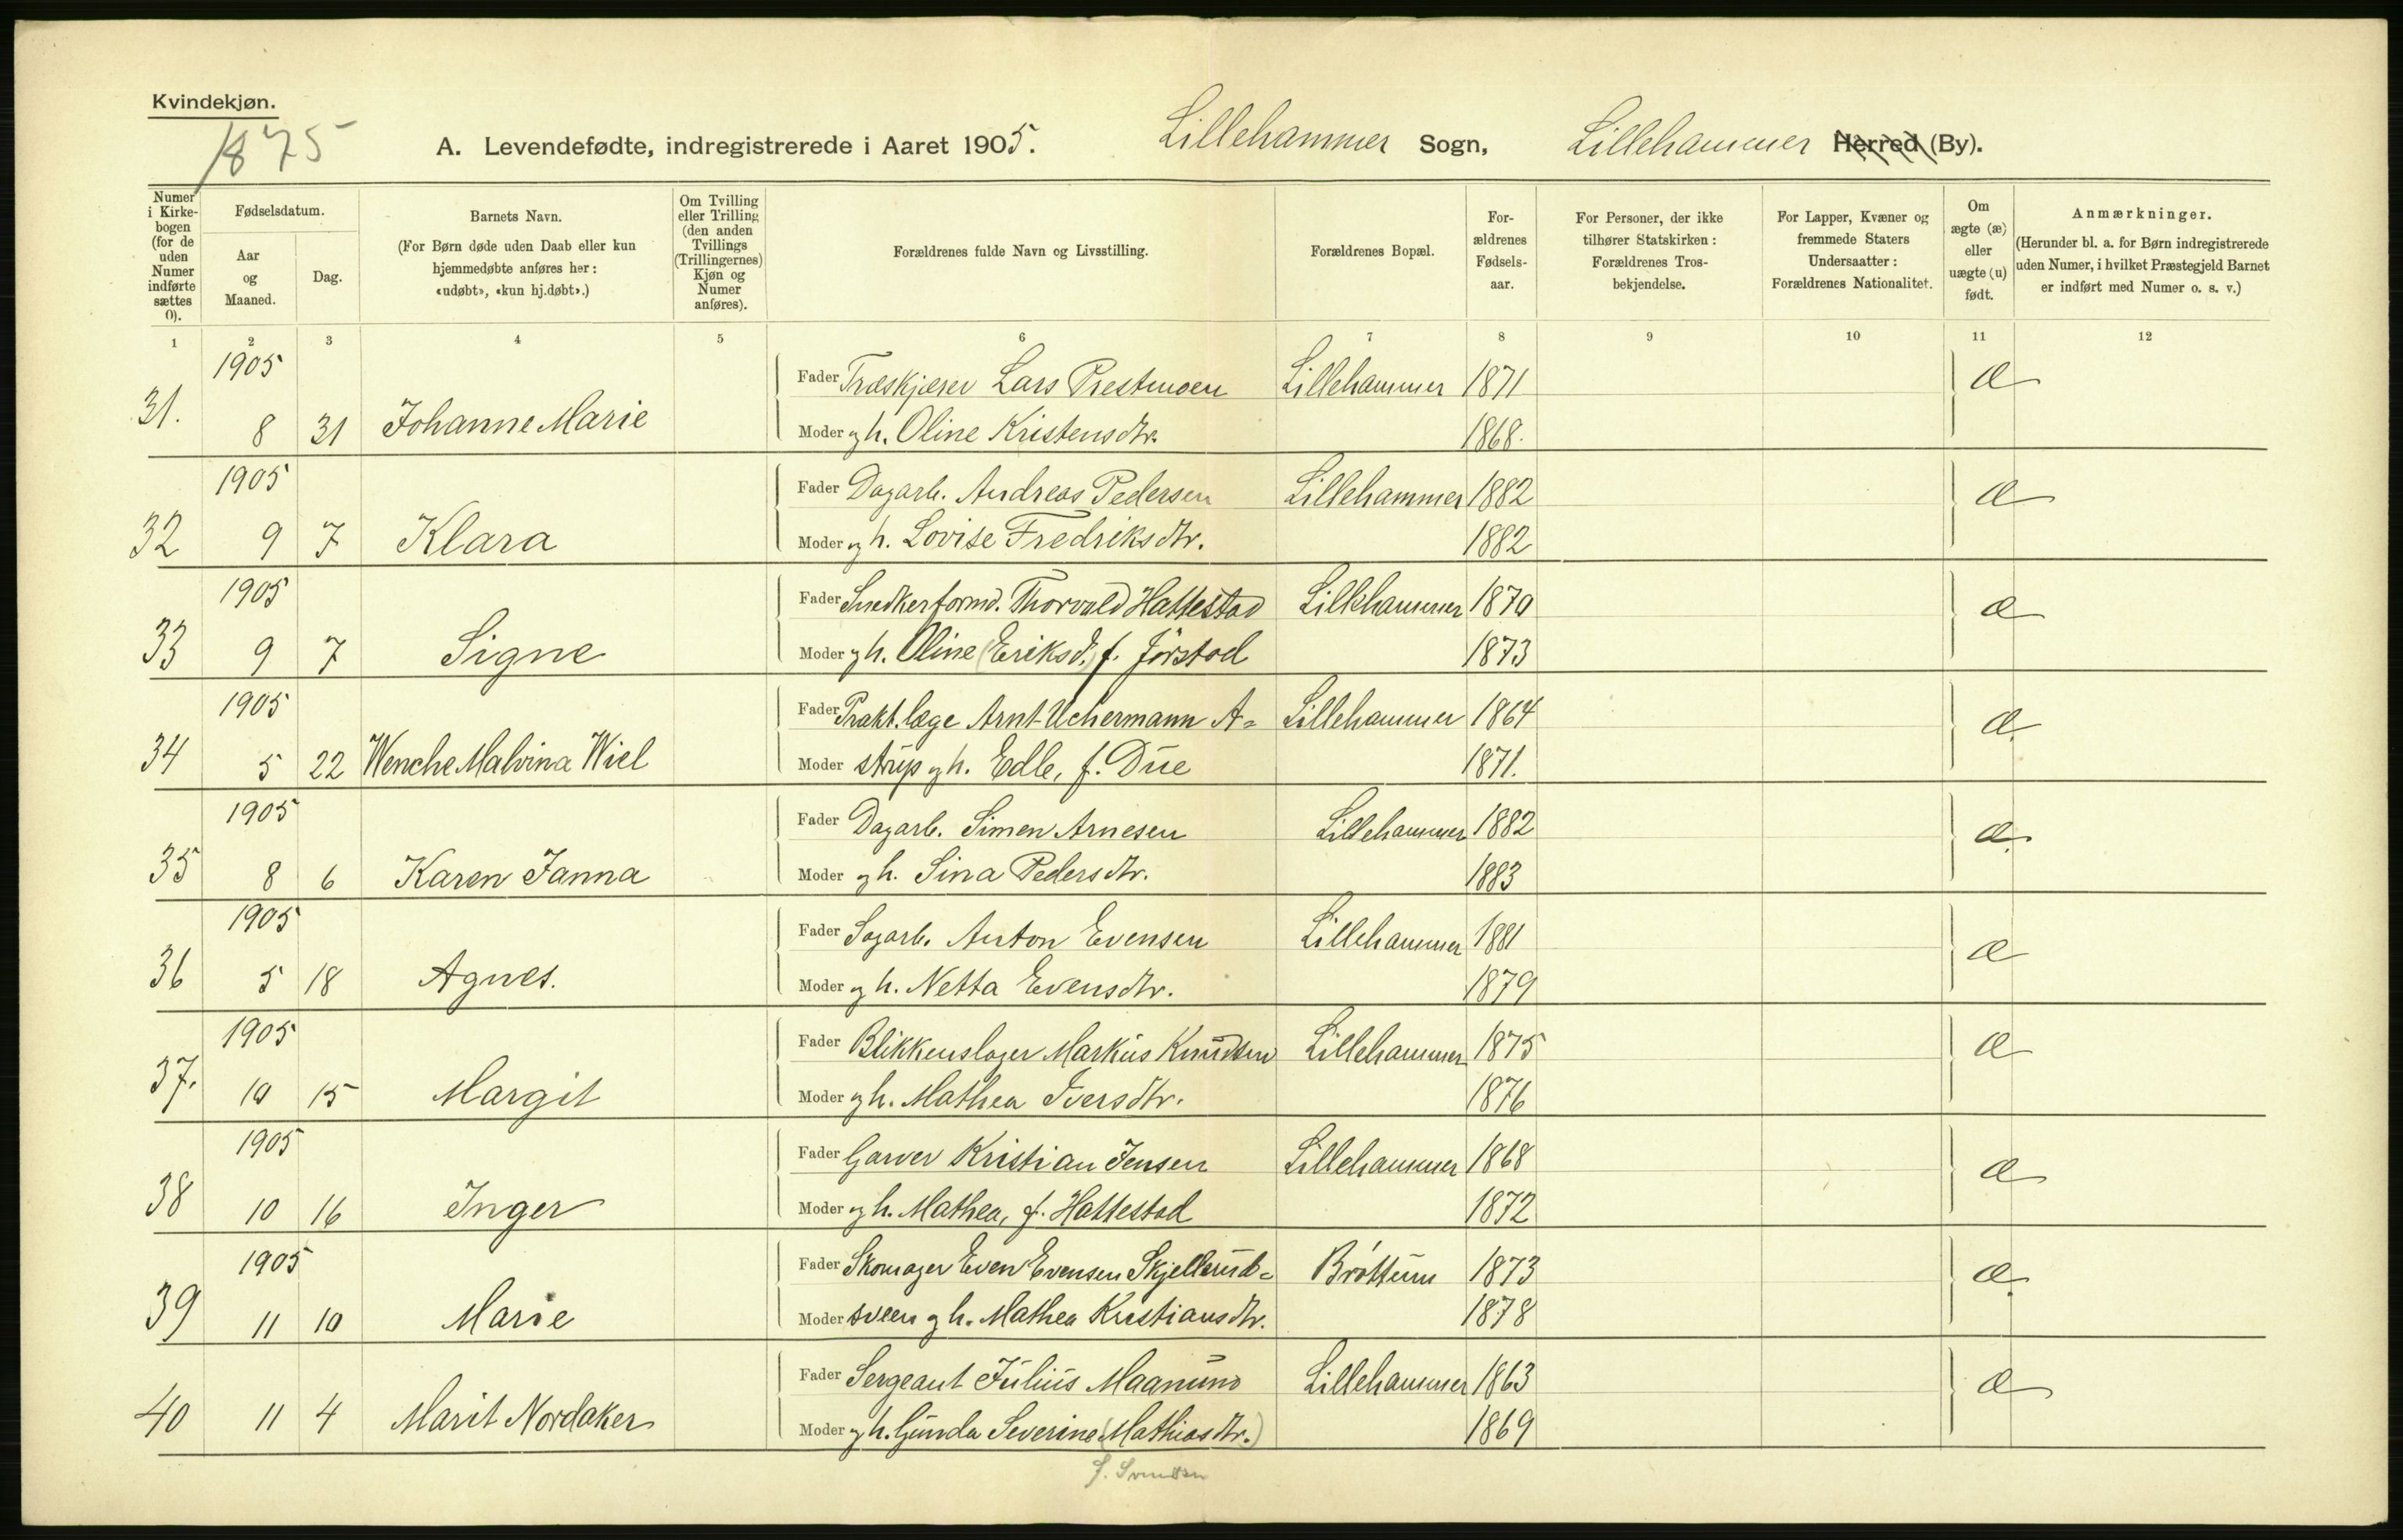 Kvindekjøn.
1875
A. Levendefødte, indregistrerede i Aaret 1905. Lillehammer Sogn, Lillehammer Herred (By).
Numer i Kirkebogen (for de uden Numer indførte sættes 0).
Fødselsdatum.
Aar og Maaned.
Dag.
Barnets Navn.
(For Børn døde uden Daab eller kun hjemmedøbte anføres her: «udøbt», «kun hj.døbt».)
Om Tvilling eller Trilling (den anden Tvillings (Trillingernes) Kjøn og Numer anføres).
Forældrenes fulde Navn og Livsstilling.
Forældrenes Bopæl.
For-
ældrenes
Fødsels-
aar.
For Personer, der ikke
tilhører Statskirken:
Forældrenes Tros-
bekjendelse.
For Lapper, Kvæner og
fremmede Staters
Undersaatter:
Forældrenes Nationalitet.
Om
ægte (æ)
eller
uægte (u)
født.
Anmærkninger.
(Herunder bl. a. for Børn indregistrerede
uden Numer, i hvilket Præstegjeld Barnet
er indført med Numer o. s. v.)
1 2 3 4 5 6 7 8 9 10 11 12
1905 Fader Træskjærer Lars Prestmoen Lillehammer 1871 æ
31. 8 31 Johanne Marie Moder og h. Oline Kristensdtr. 1868.
1905 Fader Dagarb. Andreas Pedersen Lillehammer 1882 æ
32 9 7 Klara Moder og h. Lovise Fredriksdtr. 1882
1905 Fader Snedkerformd. Thorvald Hattestad Lillehammer 1870 æ
33 9 7 Signe Moder og h. Oline (Eriksd.) f. Jørstad 1873
1905 Fader Prakt. læge Arnt Uchermann A= Lillehammer 1864 æ
34 5 22 Wenche Malvina Wiel Moder strup og h. Edle, f. Due 1871.
1905 Fader Dagarb. Simen Arnesen Lillehammer 1882 æ
35 8 6 Karen Janna Moder og h. Sina Pedersdtr. 1883
1905 Fader Sagarb. Anton Evensen Lillehammer 1881 æ
36 5 18 Agnes. Moder og h. Netta Evensdtr. 1879
1905 Fader Blikkenslager Markus Knudsen Lillehammer 1875 æ
37. 10 15 Margit Moder og h. Mathea Iversdtr. 1876
1905 Fader Garver Kristian Jensen Lillehammer 1868 æ
38 10 16 Inger Moder og h. Mathea, f. Hattestad 1872
1905 Fader Skomager Even Evensen Skjellerud= Brøttum 1873 æ
39 11 10 Marie Moder sveen og h. Mathea Kristiansdtr. 1878
Fader Sergeant Julius Maanum Lillehammer 1863 æ
40 11 4 Marit Nordaker Moder og h. Gunda Severine (Mathiasdtr.) 1869